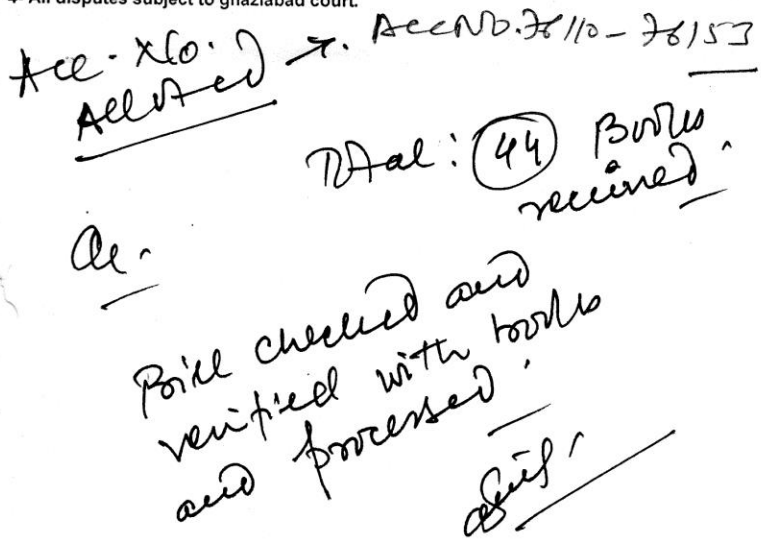 4- All disputes subject to ghaziabad court.
Acc. No. Allotted → Acc No. 76110 - 76153
Total: 44 Books
received.
Bill checked and
verified with books
and processed.